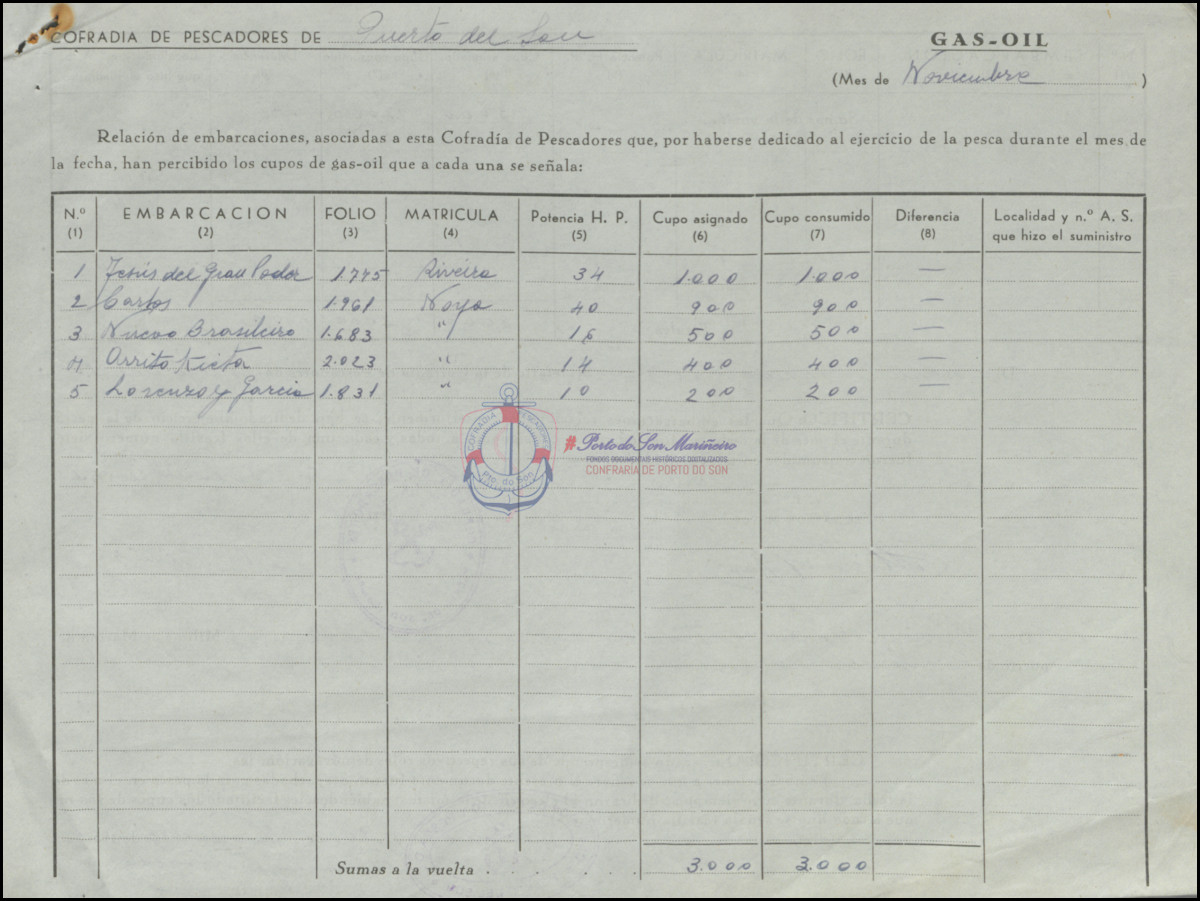 COFRADIA DE PESCADORES DE Puerto del Son
GAS-OIL
(Mes de Noviembre)
Relación de embarcaciones, asociadas a esta Cofradía de Pescadores que, por haberse dedicado al ejercicio de la pesca durante el mes de
la fecha, han percibido los cupos de gas-oil que a cada una se señala:
N.º EMBARCACION FOLIO MATRICULA Potencia H. P. Cupo asignado Cupo consumido Diferencia Localidad y n.º A. S. que hizo el suministro
(1) (2) (3) (4) (5) (6) (7) (8)
1 Jesús del Gran Poder 1.775 Riveira 34 1.000 1.000 —
2 Carlos 1.961 Noya 40 900 900 —
3 Nuevo Brasileiro 1.683 " 16 500 500 —
4 2.023 " 14 400 400 —
5 Lorenzo y Garcia 1.831 " 10 200 200 —
COFRADIA PESCADORES
Pto. do Son
#Porto do Son Mariñeiro
FONDOS DOCUMENTAIS HISTÓRICOS DIXITALIZADOS
CONFRARÍA DE PORTO DO SON
Sumas a la vuelta . . . . . 3.000 3.000